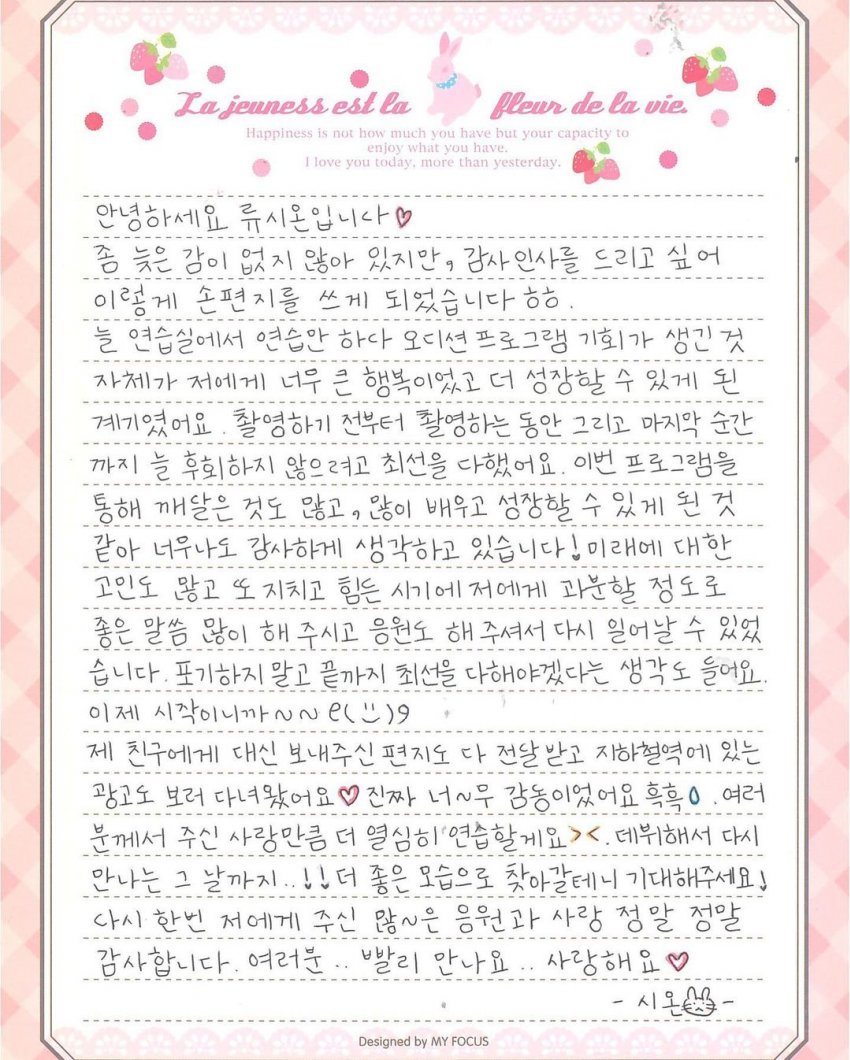 La jeuness est la fleur de la vie.
Happiness is not how much you have but your capacity to
enjoy what you have.
I love you today, more than yesterday.
안녕하세요 류시온입니다♡
좀 늦은 감이 없지 않아 있지만, 감사인사를 드리고 싶어
이렇게 손편지를 쓰게 되었습니다 ㅎㅎ.
늘 연습실에서 연습만 하다 오디션 프로그램 기회가 생긴 것
자체가 저에게 너무 큰 행복이었고 더 성장할 수 있게 된
계기였어요. 촬영하기 전부터 촬영하는 동안 그리고 마지막 순간
까지 늘 후회하지 않으려고 최선을 다했어요. 이번 프로그램을
통해 깨달은 것도 많고, 많이 배우고 성장할 수 있게 된 것
같아 너무나도 감사하게 생각하고 있습니다! 미래에 대한
고민도 많고 또 지치고 힘든 시기에 저에게 과분할 정도로
좋은 말씀 많이 해 주시고 응원도 해 주셔서 다시 일어날 수 있었
습니다. 포기하지 말고 끝까지 최선을 다해야겠다는 생각도 들어요.
이제 시작이니까~~ e( :) )9
제 친구에게 대신 보내주신 편지도 다 전달 받고 지하철역에 있는
광고도 보러 다녀왔어요♡ 진짜 너~무 감동이었어요 흑흑💧. 여러
분께서 주신 사랑만큼 더 열심히 연습할게요><. 데뷔해서 다시
만나는 그 날까지..!! 더 좋은 모습으로 찾아갈테니 기대해주세요!
다시 한번 저에게 주신 많~은 응원과 사랑 정말 정말
감사합니다. 여러분.. 빨리 만나요.. 사랑해요♡
- 시온 -
Designed by MY FOCUS